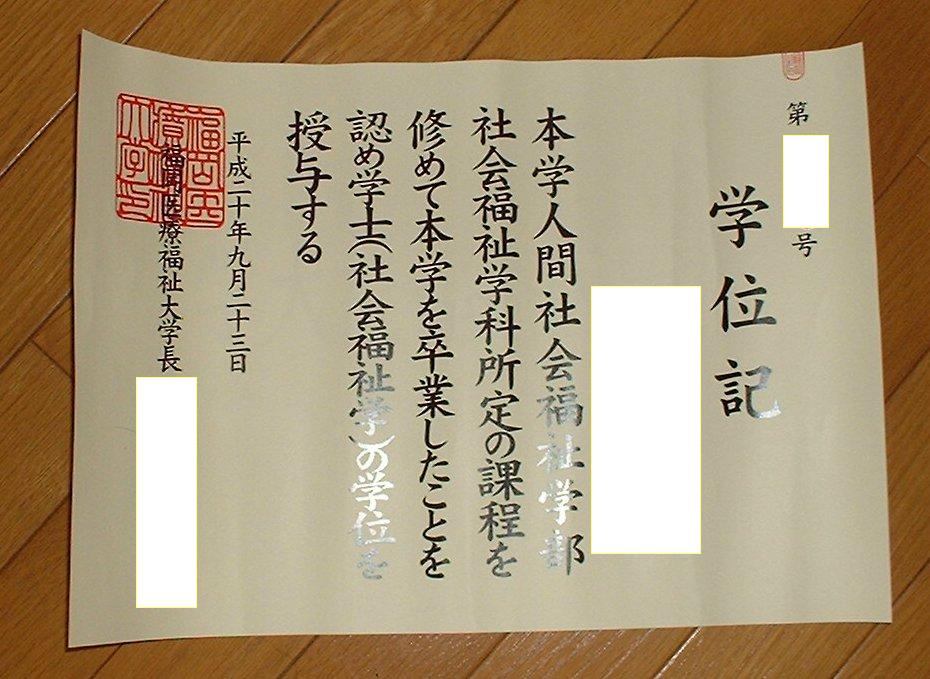 第
号
学位記
本学人間社会福祉学部
社会福祉学科所定の課程を
修めて本学を卒業したことを
認め学士(社会福祉学)の学位を
授与する
平成二十年九月二十三日
福岡医療福祉大学長